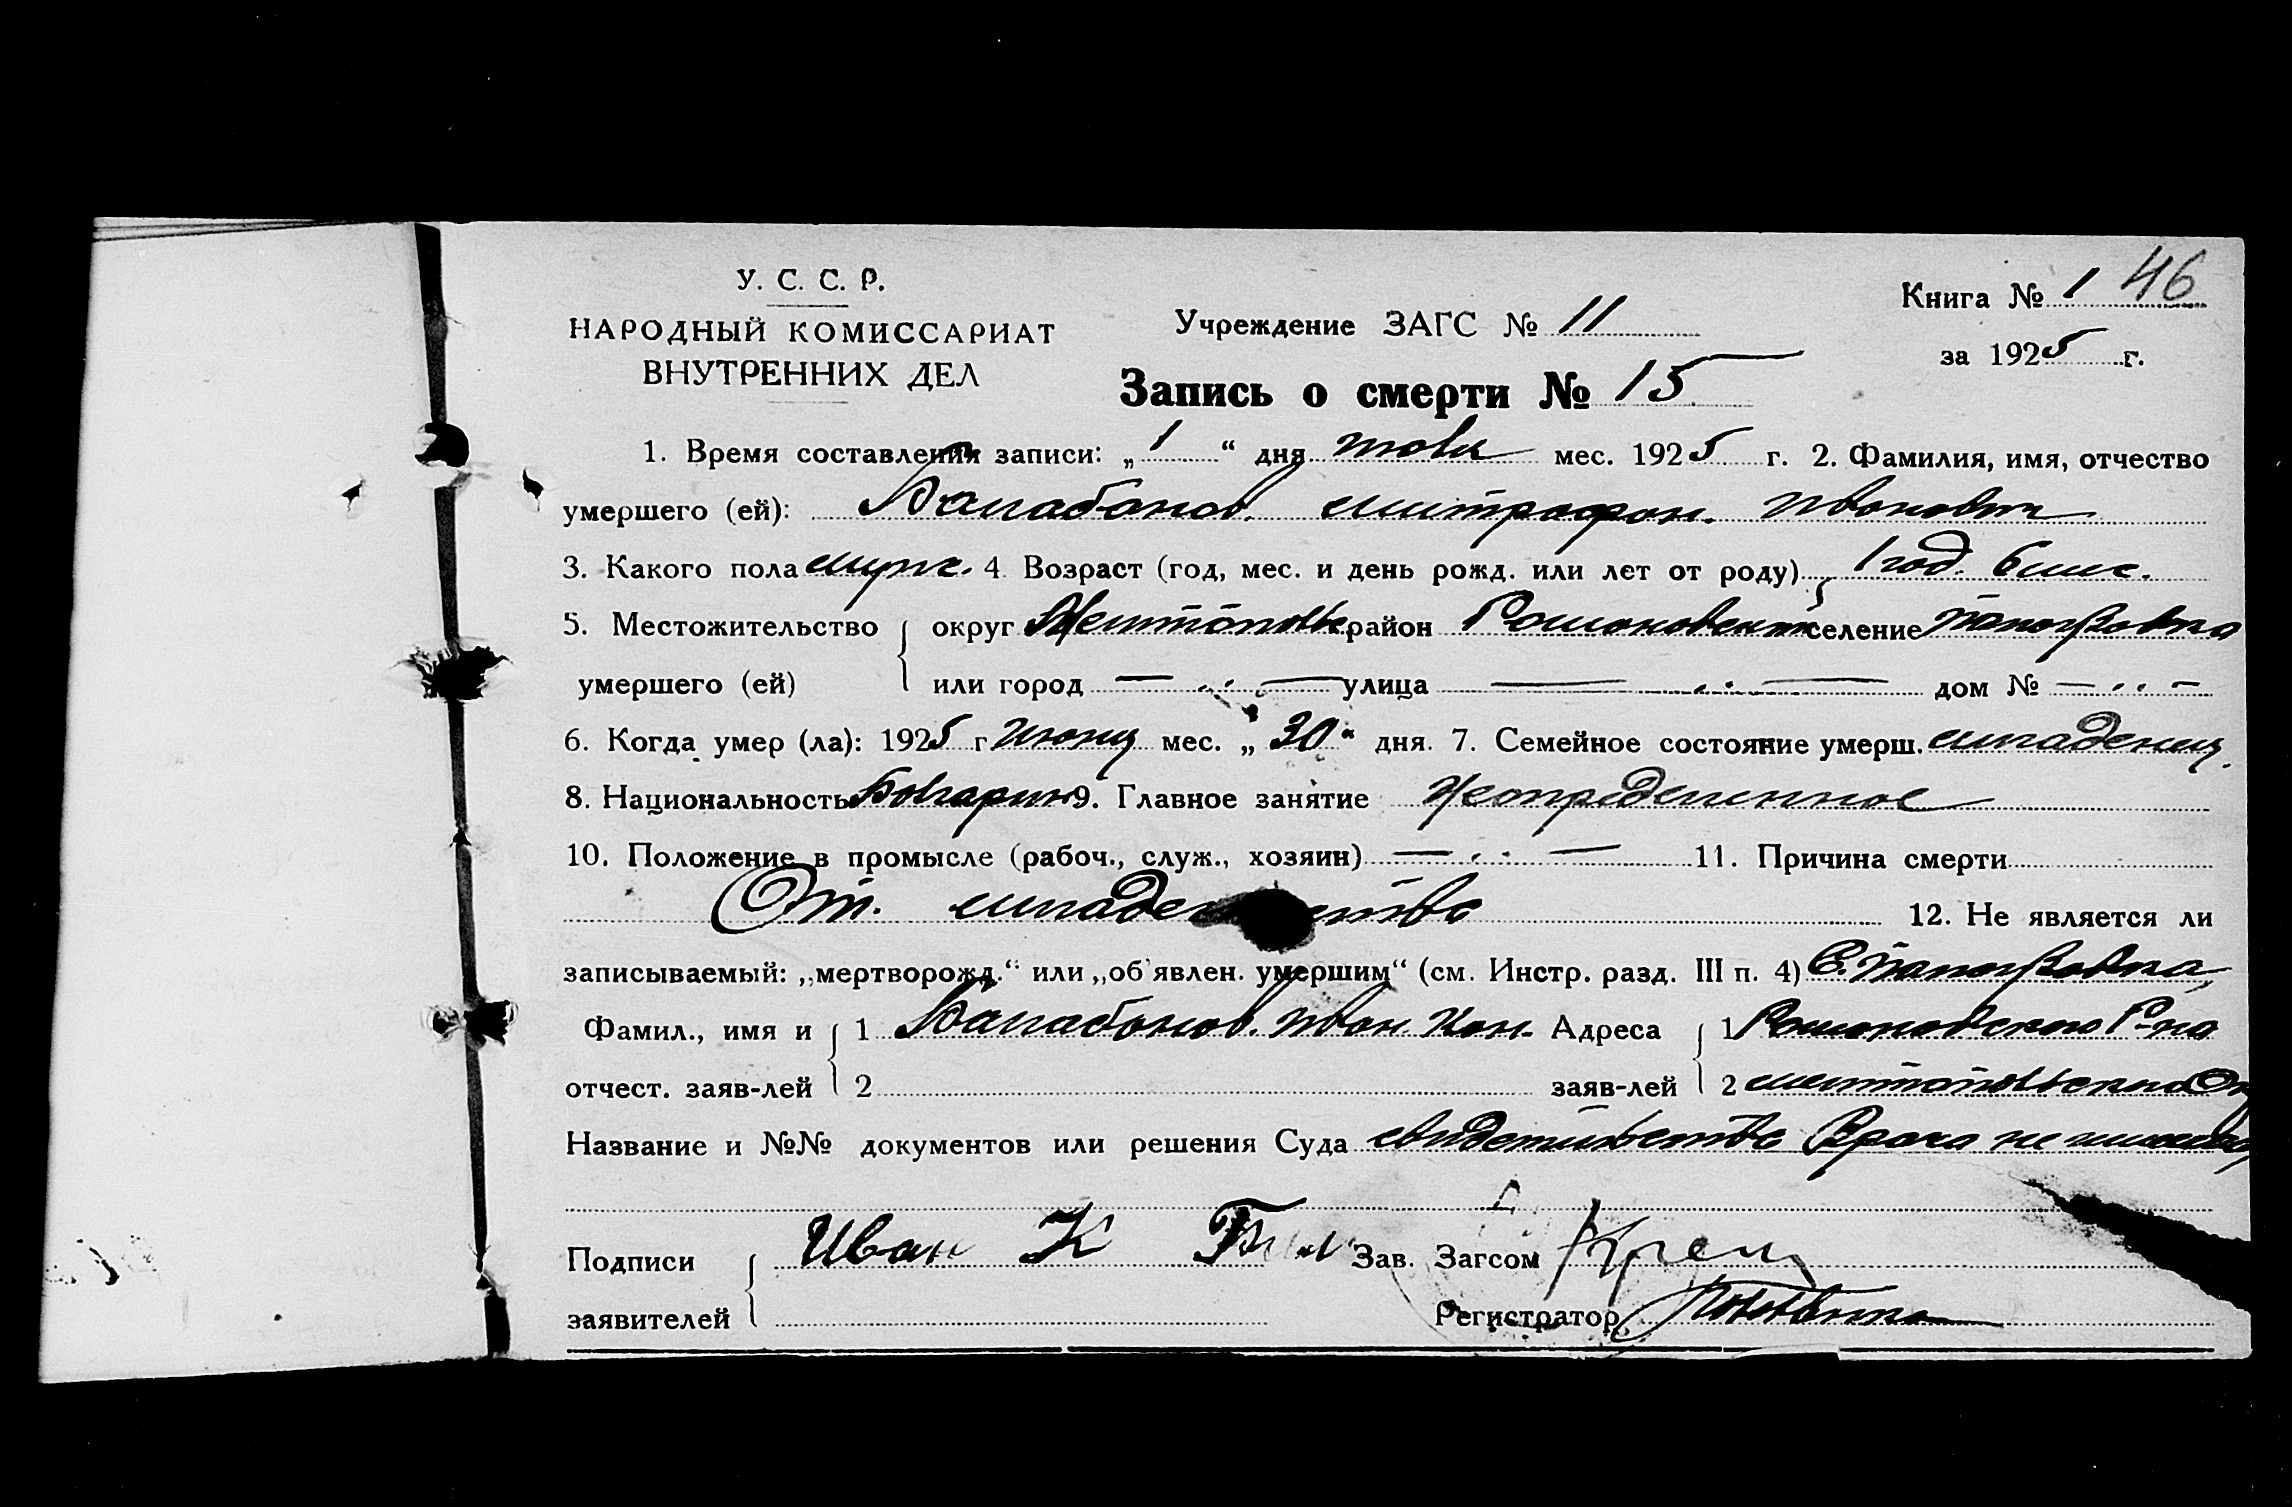 У. С. С. Р.
НАРОДНЫЙ КОМИССАРИАТ
ВНУТРЕННИХ ДЕЛ
Учреждение ЗАГС № 11
Книга № 1 46
за 1925 г.
Запись о смерти № 15
1. Время составления записи: „1“ дня июля мес. 1925 г. 2. Фамилия, имя, отчество
умершего (ей): Балабанов. митрофон. Иванович
3. Какого пола мужс. 4 Возраст (год, мес. и день рожд. или лет от роду) 1 год. 6 мис.
5. Местожительство округ Мелитопольс. район Романовский селение
умершего (ей) или город улица дом №
6. Когда умер (ла): 1925 г Июня мес. „30“ дня. 7. Семейное состояние умерш. младенец.
8. Национальность Болгарин 9. Главное занятие Неопределенное
10. Положение в промысле (рабоч., служ., хозяин) 11. Причина смерти
От. младенства 12. Не является ли
записываемый: „мертворожд.“ или „об'явлен. умершим“ (см. Инстр. разд. III п. 4) С.
Фамил., имя и 1 Балабанов. Иван Кон. Адреса 1 Романовского Р-на
отчест. заяв-лей 2 заяв-лей 2 мелитопольского Ок
Название и №№ документов или решения Суда свидетельства Врача не
Подписи Иван К Зав. Загсом
заявителей Регистратор